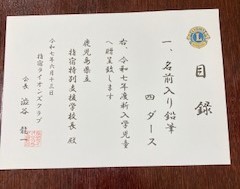 目録
一、名前入り鉛筆
四ダース
右、令和七年度新入学児童
へ贈呈致します
鹿児島県立
指宿特別支援学校長 殿
令和七年六月十三日
指宿ライオンズクラブ
会長 澁谷 龍一